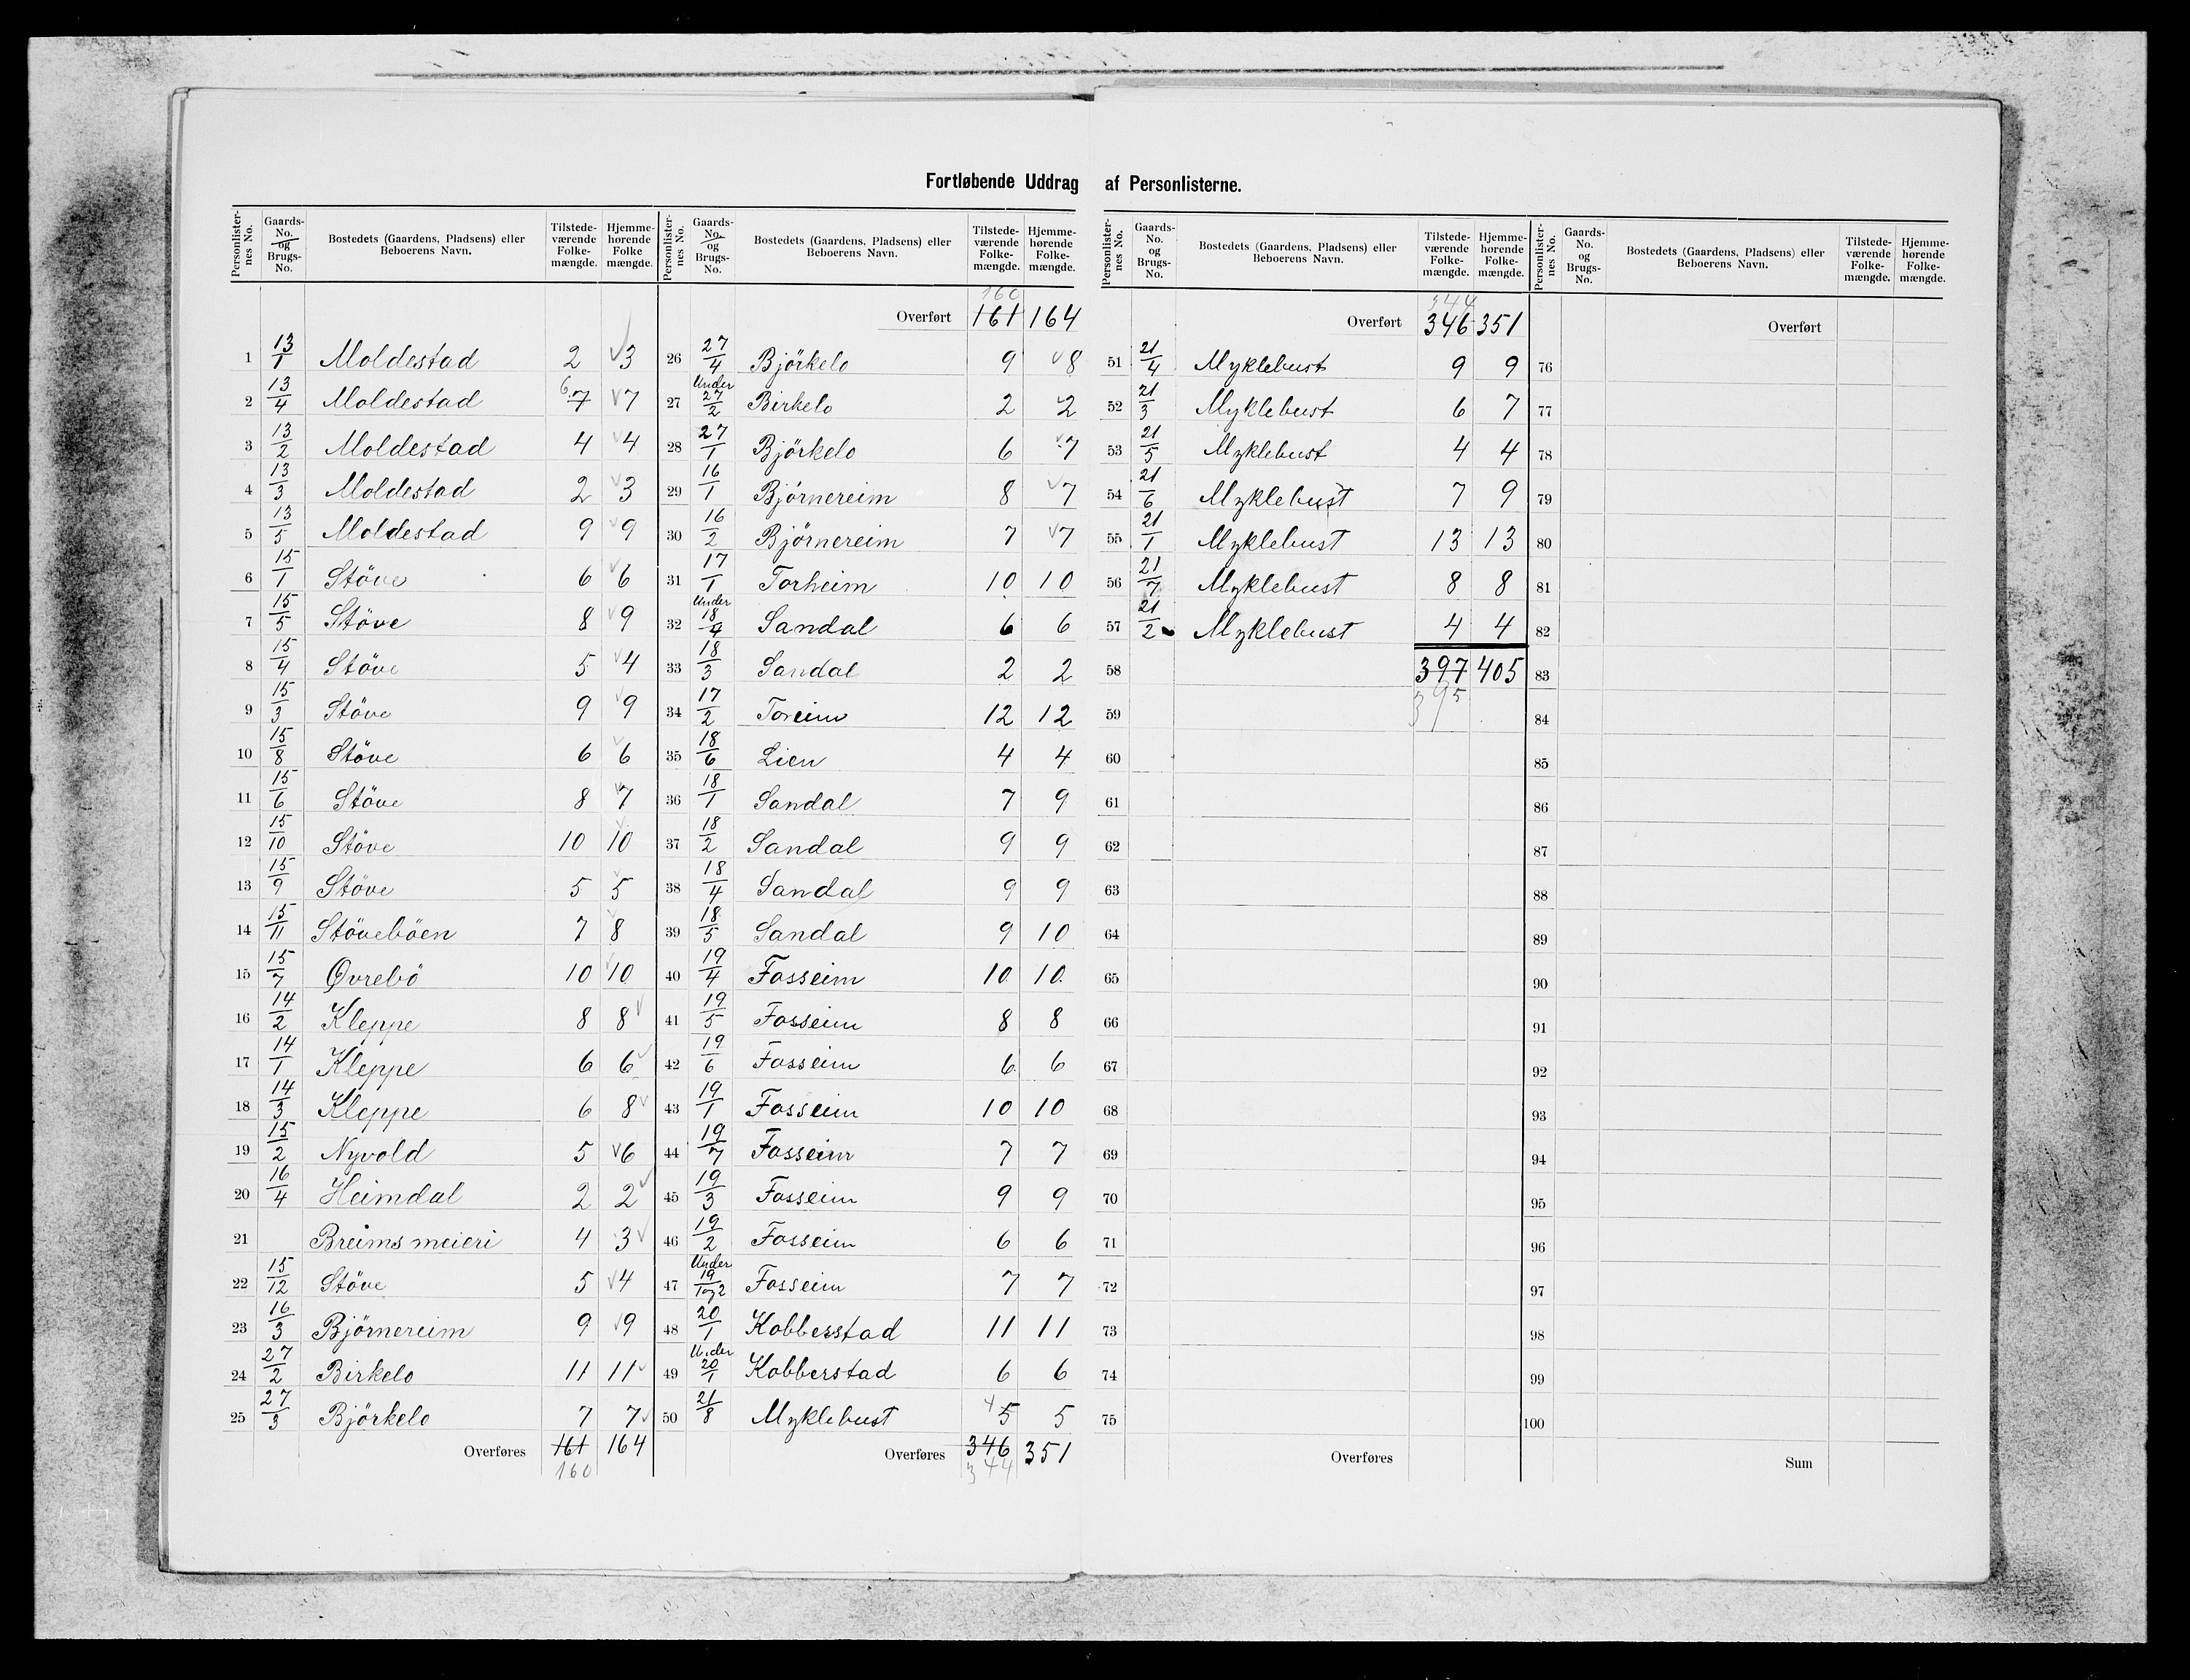 Fortløbende Uddrag af Personlisterne.
Personlister-nes No. Gaards-No. og Brugs-No. Bostedets (Gaardens, Pladsens) eller Beboerens Navn. Tilstede-værende Folke-mængde. Hjemme-hørende Folke mængde.
1 13/1 Moldestad 2 √3
2 13/4 Moldestad 6 7 √7
3 13/2 Moldestad 4 √4
4 13/3 Moldestad 2 √3
5 13/5 Moldestad 9 √9
6 15/1 Støve 6 √6
7 15/5 Støve 8 √9
8 15/4 Støve 5 √4
9 15/3 Støve 9 √9
10 15/8 Støve 6 √6
11 15/6 Støve 8 √7
12 15/10 Støve 10 √10
13 15/9 Støve 5 √5
14 15/11 Støvebøen 7 √8
15 15/7 Øvrebö 10 √10
16 14/2 Kleppe 8 8√
17 14/1 Kleppe 6 6√
18 14/3 Kleppe 6 8√
19 15/2 Nyvold 5 √6
20 16/4 Heimdal 2 2√
21 Breims meieri 4 3√
22 15/12 Støve 5 √4
23 16/3 Björnereim 9 √9
24 27/2 Birkelo 11 11√
25 27/3 Björkelo 7 7√
Overføres 161 164
160
Personlister-nes No. Gaards-No. og Brugs-No. Bostedets (Gaardens, Pladsens) eller Beboerens Navn. Tilstede-værende Folke-mængde. Hjemme-hørende Folke-mængde.
160
Overført 161 164
26 27/4 Björkelo 9 √8
27 Under 27/2 Birkelo 2 √2
28 27/1 Björkelo 6 √7
29 16/1 Björnereim 8 √7
30 16/2 Björnereim 7 √7
31 17/1 Torheim 10 10
32 Under 18/4 Sandal 6 6
33 18/3 Sandal 2 2
34 17/2 Toreim 12 12
35 18/6 Lien 4 4
36 18/1 Sandal 7 9
37 18/2 Sandal 9 9
38 18/4 Sandal 9 9
39 18/5 Sandal 9 10
40 19/4 Fosseim 10 10
41 19/5 Fosseim 8 8
42 19/6 Fosseim 6 6
43 19/1 Fosseim 10 10
44 19/7 Fosseim 7 7
45 19/3 Fosseim 9 9
46 19/2 Fosseim 6 6
47 Under 19/1og2 Fosseim 7 7
48 20/1 Kobberstad 11 11
49 Under 20/1 Kobberstad 6 6
50 21/8 Myklebust 4 5 5
Overføres 346 351
344
Personlister-nes No. Gaards-No. og Brugs-No. Bostedets (Gaardens, Pladsens) eller Beboerens Navn. Tilstede-værende Folke-mængde. Hjemme-hørende Folke-mængde.
344
Overført 346 351
51 21/4 Myklebust 9 9
52 21/3 Myklebust 6 7
53 21/5 Myklebust 4 4
54 21/6 Myklebust 7 9
55 21/1 Myklebust 13 13
56 21/7 Myklebust 8 8
57 21/2 Myklebust 4 4
58 397 405
59 395
60
61
62
63
64
65
66
67
68
69
70
71
72
73
74
75
Overføres
Personlister-nes No. Gaards-No. og Brugs-No. Bostedets (Gaardens, Pladsens) eller Beboerens Navn. Tilstede-værende Folke-mængde. Hjemme-hørende Folke-mængde.
Overført
76
77
78
79
80
81
82
83
84
85
86
87
88
89
90
91
92
93
94
95
96
97
98
99
100
Sum